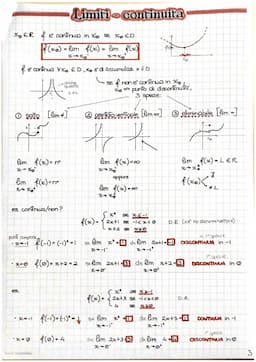 Limiti - continuità
x₀ ∈ R f è continua in x₀ se x₀ ∈ D
f(x₀) = lim x→x₀⁻ f(x) = lim x→x₀⁺ f(x)
f è continua ∀ x₀ ∈ D, x₀ è di accumulaz. x il D
se f non è continua in x₀
x₀ = punto di discontinuità,
3 specie:
① salto [lim = n°] ② [lim = ∞] ③ eliminabile [lim = n°]
lim x→x₀⁻ f(x) = n° lim x→x₀ f(x) = ∞ lim x→x₀ f(x) = L ∈ R
oppure
lim x→x₀⁺ f(x) = n° lim x→x₀ f(x) = ∞ f(x₀) ≠ L
es continua/non?
f(x) = { x² se x ≤ -1
2x+1 se -1<x<0 D: R
x+2 se x ≥ 0
x = -1 f(-1) = (-1)² = 1 sx lim x→-1⁻ x² = 1 dx lim x→-1⁺ 2x+1 = -1 DISCONTINUA in -1
x = 0 f(0) = x+2 = 2 sx lim x→0⁻ 2x+1 = 1 dx lim x→0⁺ x+2 = 2 DISCONTINUA in 0
es f(x) = { x² se x ≤ -1
2x+3 se -1<x<0 D: R
4 se x ≥ 0
x = -1 f(-1) = (-1)² = 1 sx lim x→-1⁻ x² = 1 dx lim x→-1⁺ 2x+3 = 1 CONTINUA in -1
x = 0 f(0) = 4 sx lim x→0⁻ 2x+3 = 3 dx lim x→0⁺ 4 = 4 DISCONTINUA in 0
3